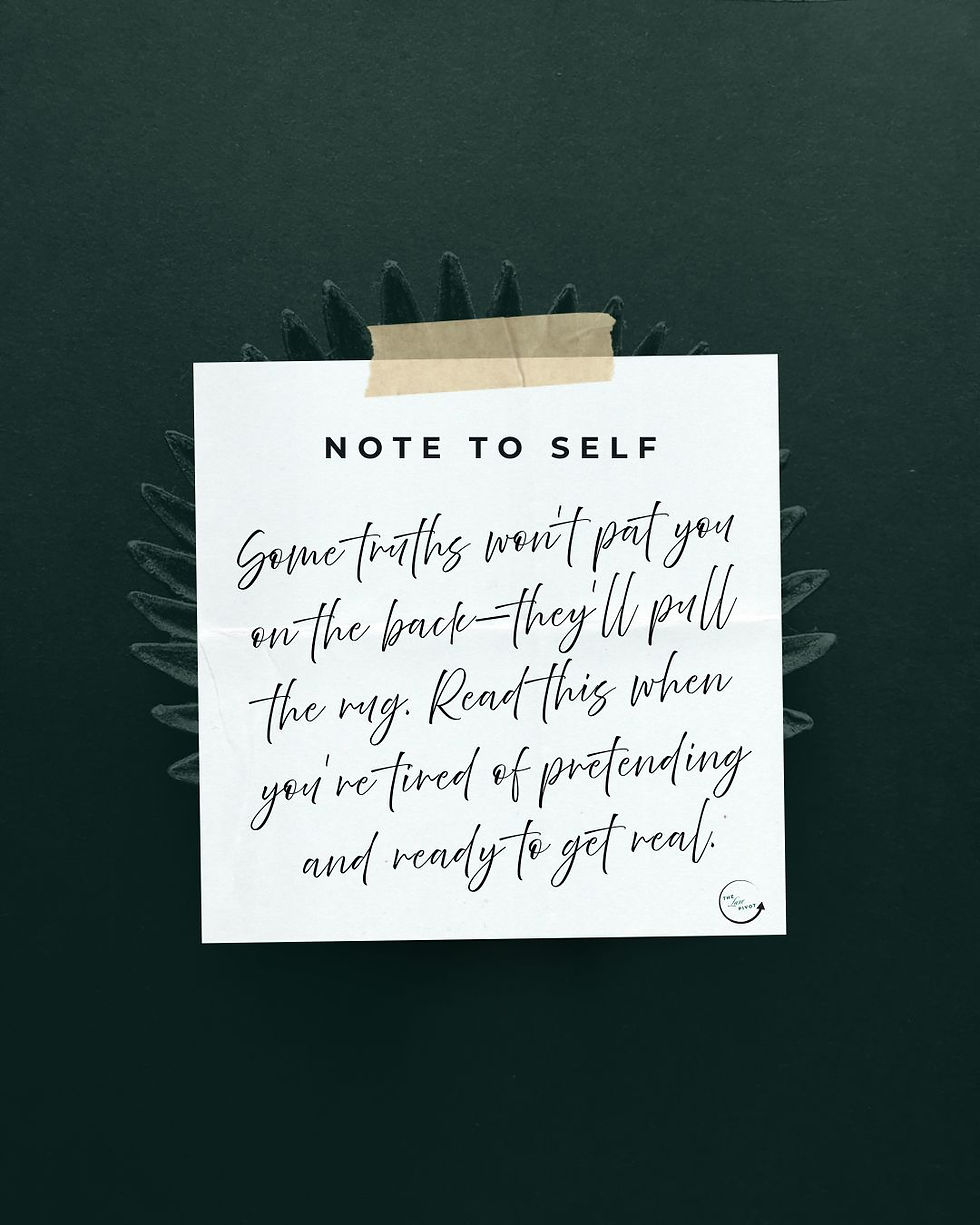 NOTE TO SELF
Some truths won't pat you
on the back—they'll pull
the rug. Read this when
you're tired of pretending
and ready to get real.
THE
Law
PIVOT